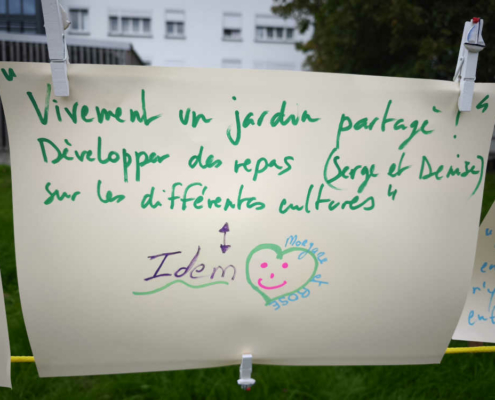 " Vivement un jardin partagé " ! "
Développer des repas (Serge et Denise)
sur les différentes cultures "
Idem
Morgane et ROSE
"
en
n'y
ent